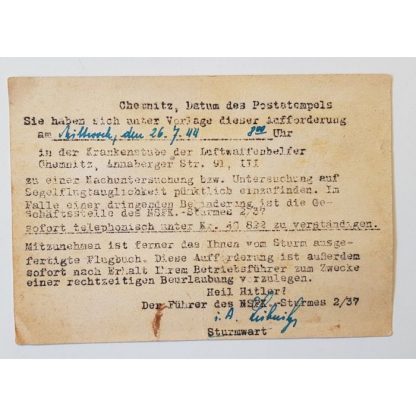 Chemnitz, Datum des Poststempels
Sie haben sich unter Vorlage dieser Aufforderung
am Mittwoch, den 26.7.44 8⁰⁰ Uhr
in der Krankenstube der Luftwaffenhelfer
Chemnitz, Annaberger Str. 91, III
zu einer Nachuntersuchung bzw. Untersuchung auf
Segelflugtauglichkeit pünktlich einzufinden. Im
Falle einer dringenden Behinderung ist die Ge-
schäftsstelle des NSFK.-Sturmes 2/37
sofort telephonisch unter Nr. 30 822 zu verständigen.
Mitzunehmen ist ferner das Ihnen vom Sturm ausge-
fertigte Flugbuch. Diese Aufforderung ist außerdem
sofort nach Erhalt Ihrem Betriebsführer zum Zwecke
einer rechtzeitigen Beurlaubung vorzulegen.
Heil Hitler!
Der Führer des NSFK.-Sturmes 2/37
i.A.
Sturmwart